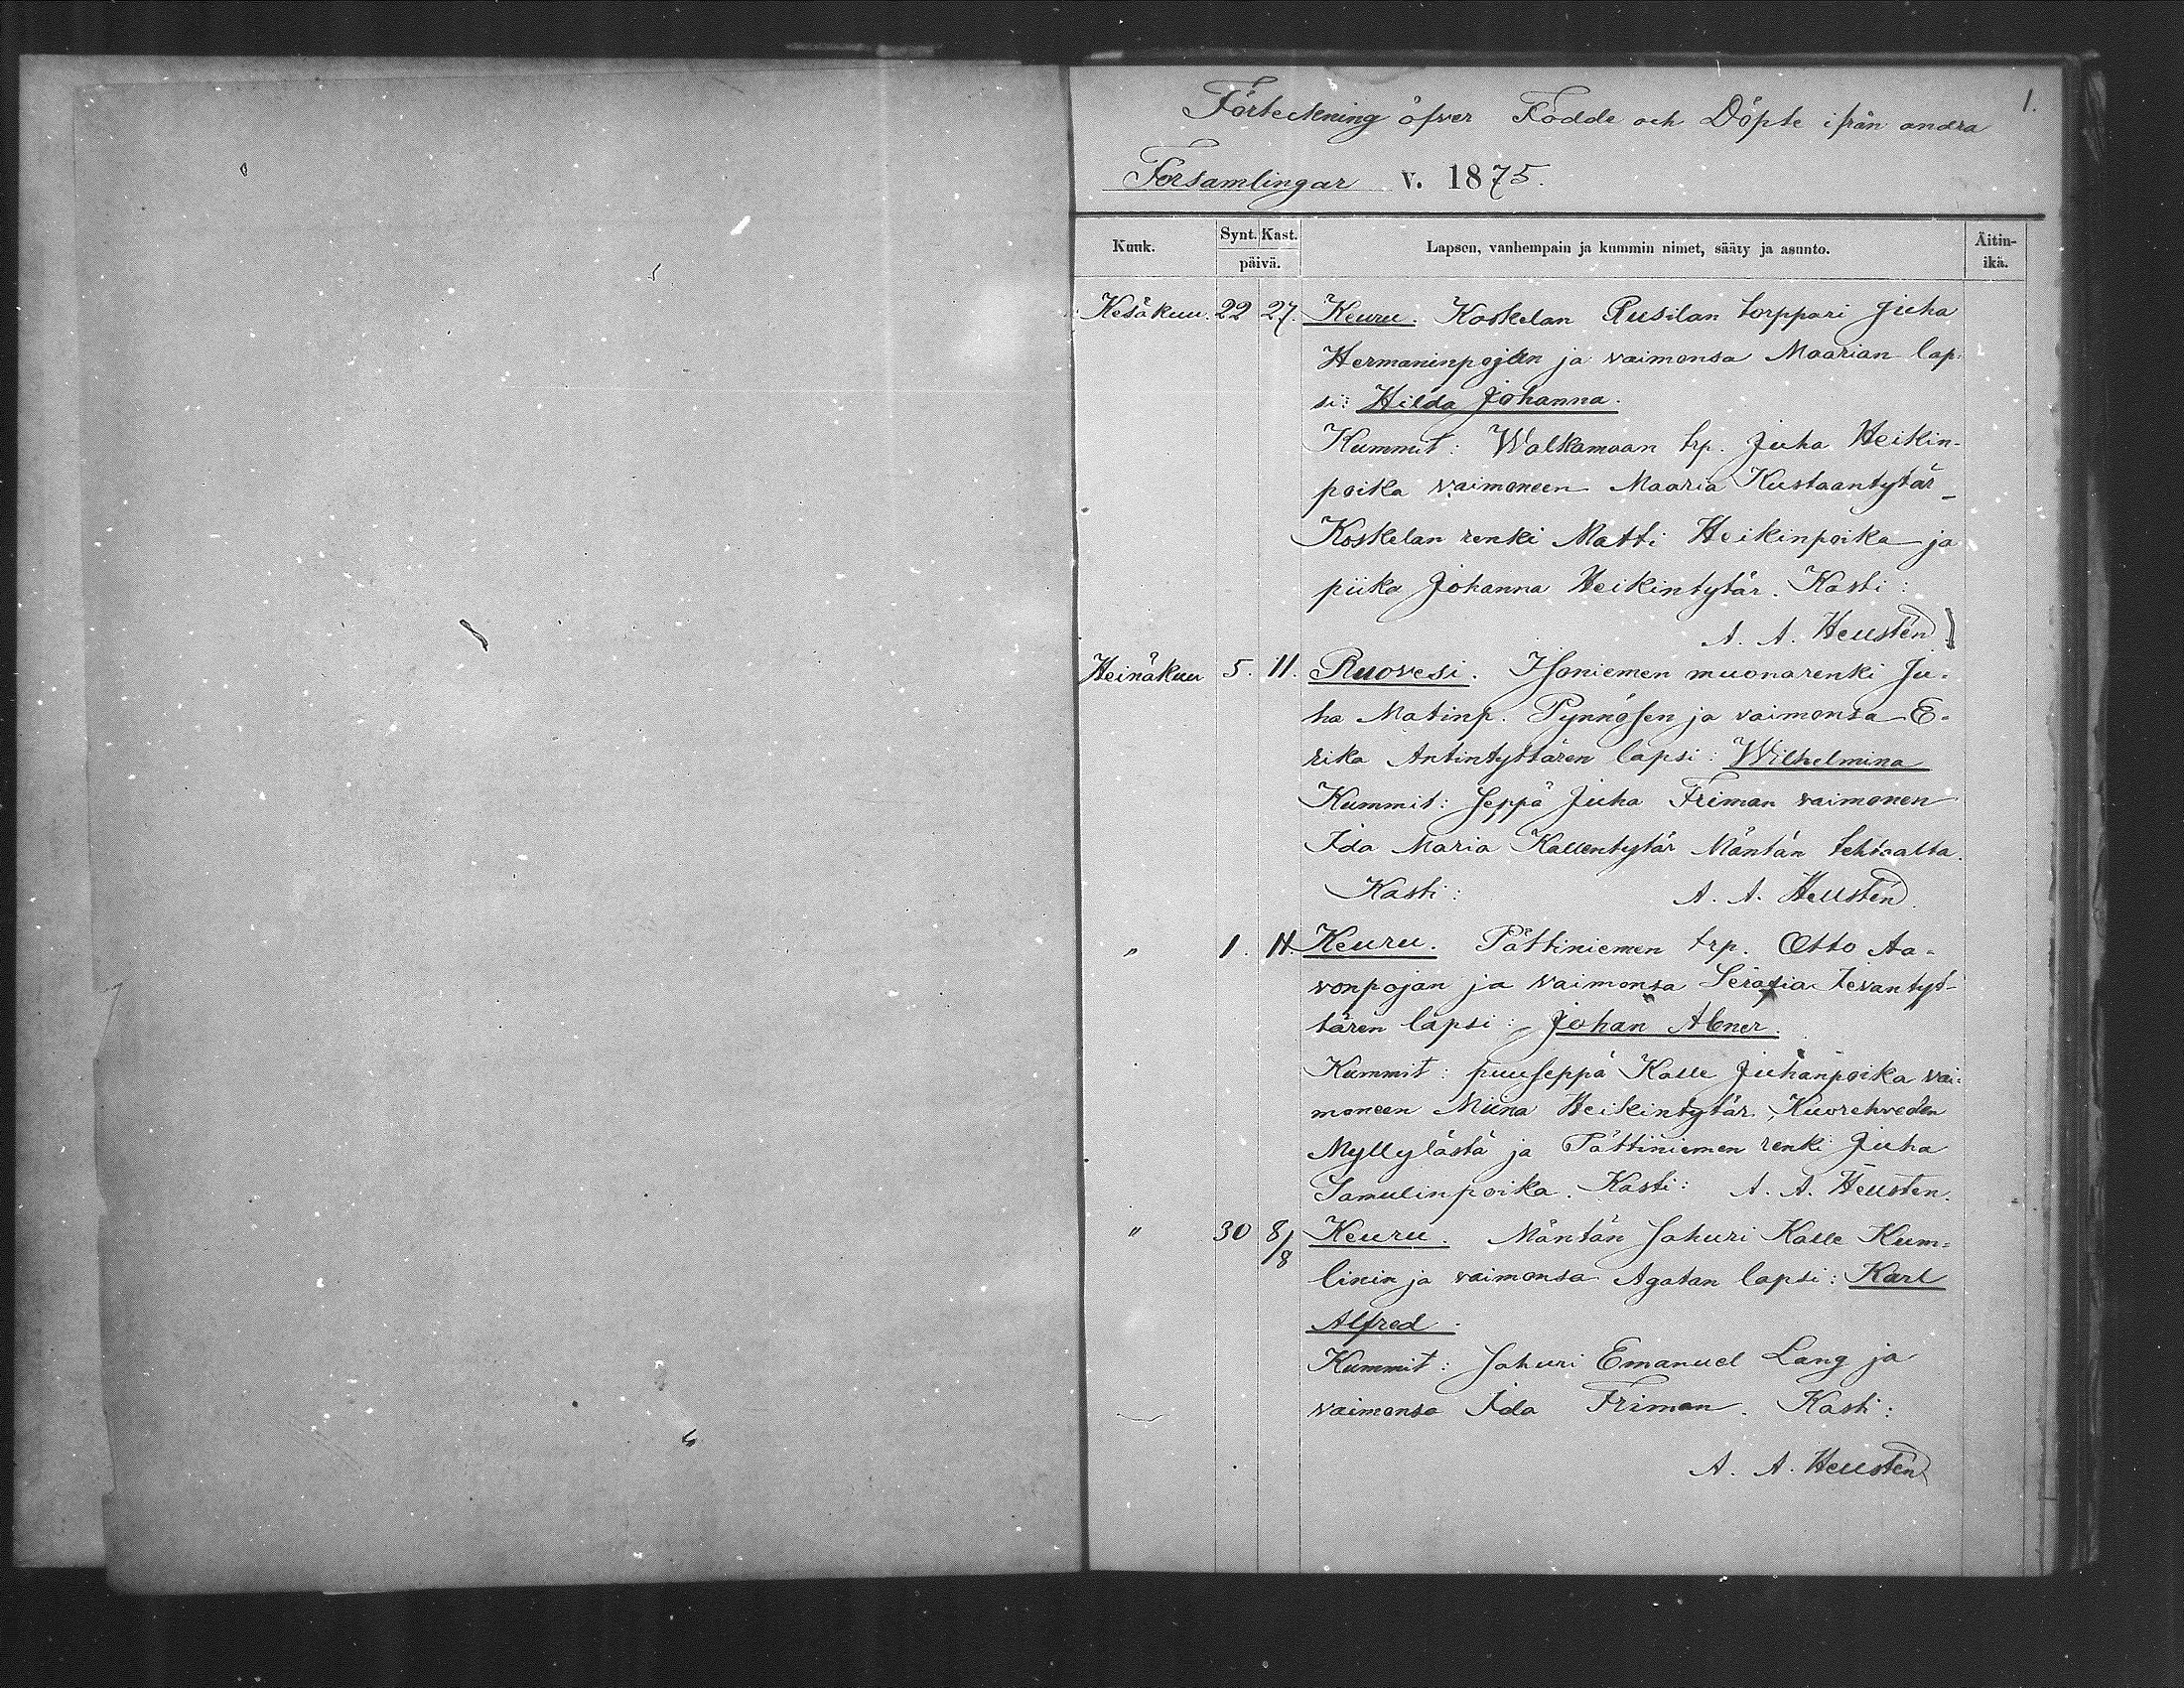 1.
Förteckning öfver Födde och Döpte ifrån andra
Församlingar v. 1875.
Kuuk. Synt. Kast. päivä. Lapsen, vanhempain ja kummin nimet, sääty ja asunto. Äitin-ikä.
Kesäkuu. 22 27. Keuru. Koskelan Rusilan torppari Juha
Hermaninpojan ja vaimonsa Maarian lap-
si: Hilda Johanna.
Kummit: Walkamaan trp. Juha Heikin-
poika vaimoneen Maaria Kustaantytär
Koskelan renki Matti Heikinpoika ja
piika Johanna Heikintytär. Kasti:
A. A. Heusten
Heinäkuu 5. 11. Ruovesi. Isoniemen muonarenki Ju-
ha Matinp. Pynnösen ja vaimonsa E-
rika Antintyttären lapsi: Wilhelmina
Kummit: Seppä Juha Friman vaimonen
Ida Maria Kallentytär Mäntän tehtaalta.
Kasti: A. A. Heusten.
" 1. 11. Keuru. Pättiniemen trp. Otto Aa-
vonpojan ja vaimonsa Serafia Ievantyt-
tären lapsi: Johan Abner.
Kummit: puuseppä Kalle Juhanpoika vai-
moneen Miina Heikintytär Kuorehveden
Myllylästä ja Pättiniemen renki Juha
Samulinpoika. Kasti: A. A. Heusten.
" 30 8/8 Keuru. Mäntän Sahuri Kalle Kum-
linin ja vaimonsa Agatan lapsi: Karl
Alfred.
Kummit: Sahuri Emanuel Lang ja
vaimonsa Ida Friman. Kasti:
A. A. Heusten